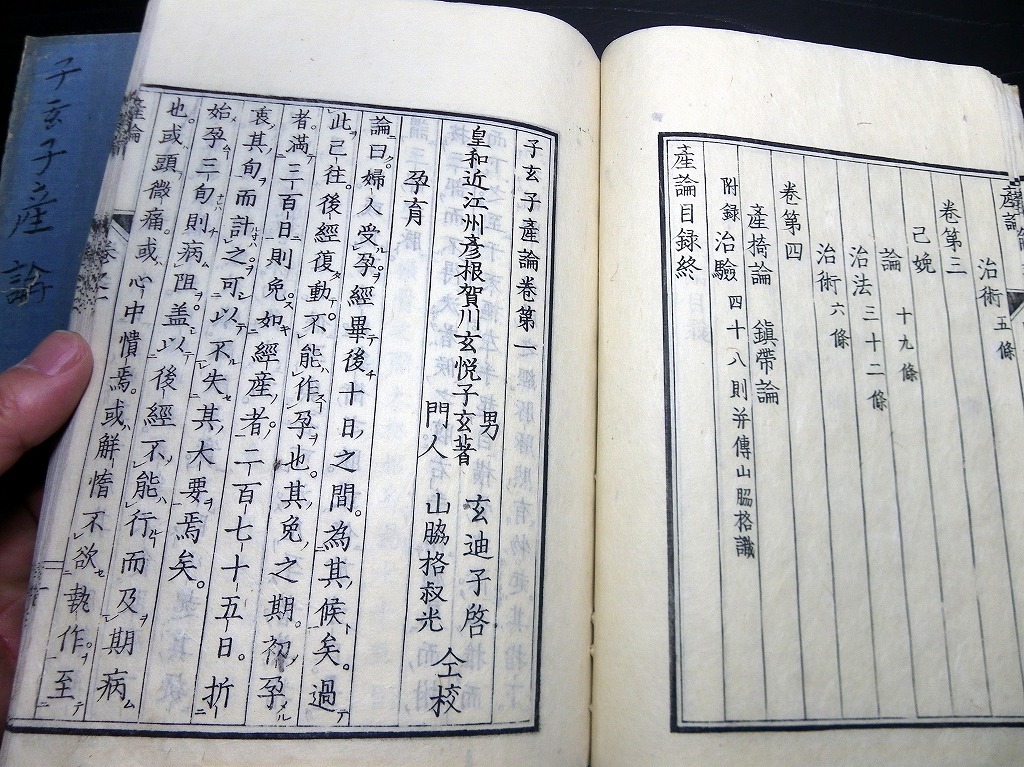 治術 五條
卷第三
己娩
論 十九條
治法 三十二條
治術 六條
卷第四
產椅論 鎮帶論
附録 治驗 四十八則并傳山脇格識
產論目録終
子玄子產論卷第一
皇和近江州彦根賀川玄悦子玄著
男 玄迪子啓
門人 山脇格叔光 仝校
孕育
論曰。婦人受孕。經畢後十日之間。為其候矣。過
此已往。後經復動。不能作孕也。其免之期。初孕
者。滿三百日則免。如經產者。二百七十五日。折
衷其旬而計之。可以不失其大要焉矣。
始孕三旬則病阻。盖以後經不能行而及期病
也。或頭微痛。或心中憒焉。或解惰不欲執作。至
產論
子玄子產論